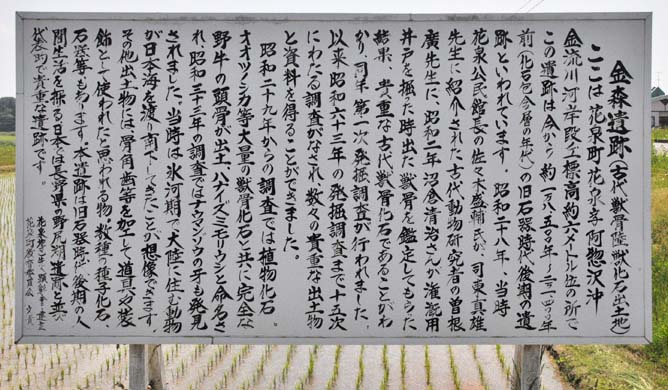 金森遺跡(古代獣骨陸獣化石出土地)
ここは花泉町花泉字阿惣沢沖
金流川河岸段丘標高約六メートル位の所で
この遺跡は今から約一八五〇〇年~三一四〇〇年
前(化石包含層の年代)の旧石器時代後期の遺
跡といわれています。昭和二十八年、当時
花泉公民館長の佐々木盛輔氏が、司東真雄
先生に紹介された古代動物研究者の曽根
廣先生に、昭和二年沼倉清治さんが灌漑用
井戸を掘った時出た獣骨を鑑定してもらった
結果、貴重な古代獣骨化石であることがわ
かり同年第一次発掘調査が行われました。
以来昭和六十三年の発掘調査まで十五次
にわたる調査がなされ、数々の貴重な出土物
と資料を得ることができました。
昭和二十九年からの調査では植物化石、
オオツノシカ等大量の獣骨化石と共に完全な
野牛の頭骨が出土、ハナイズミモリウシと命名さ
れ、昭和三十三年の調査ではナウマンゾウの牙も発見
されました。当時は氷河期で大陸に住む動物
が日本海を渡り南下してきたことが想像できます。
その他出土物には、骨角歯等を加工して道具や装
飾として使われたと思われる物、数種の種子化石、
石器等もあります。本遺跡は旧石器時代後期の人
間生活を探る日本では長野県の野尻湖遺跡と並び
代表的で貴重な遺跡です。
花泉町教育委員会